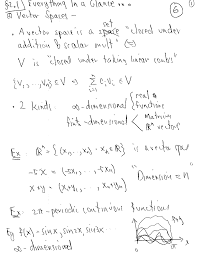 §2.1 Everything In a Glance ...
⑥
①
Vector Spaces -
• A vector space is a set "closed under
addition & scalar mult" ⇔
V is "closed under taking linear combs"
{v₁, ..., vₙ} ∈ V ⇒ Σ cᵢvᵢ ∈ V
• 2 kinds. ∞-dimensional functions
finite-dimensional { matrices
ℝⁿ vectors
Ex: ℝⁿ = {(x₁, ..., xₙ) : xᵢ ∈ ℝ} is a vector space
-5x = (-5x₁, ..., -5xₙ)
x+y = (x₁+y₁, ..., xₙ+yₙ)
"Dimension = n"
Ex: 2π-periodic continuous functions
Eg f(x) = sin x, sin 2x, sin 3x
∞-dimensional